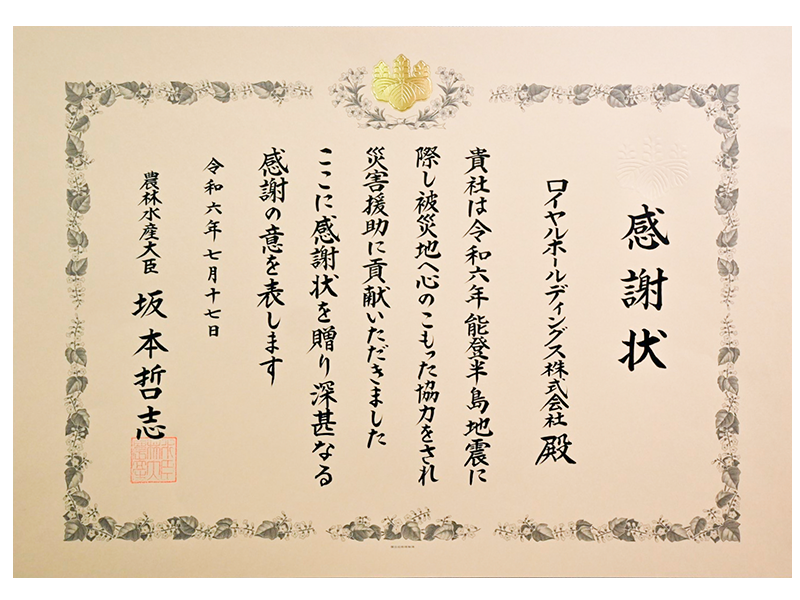 感謝状
ロイヤルホールディングス株式会社 殿
貴社は令和六年能登半島地震に
際し被災地へ心のこもった協力をされ
災害援助に貢献いただきました
ここに感謝状を贈り深甚なる
感謝の意を表します
令和六年七月十七日
農林水産大臣 坂本哲志